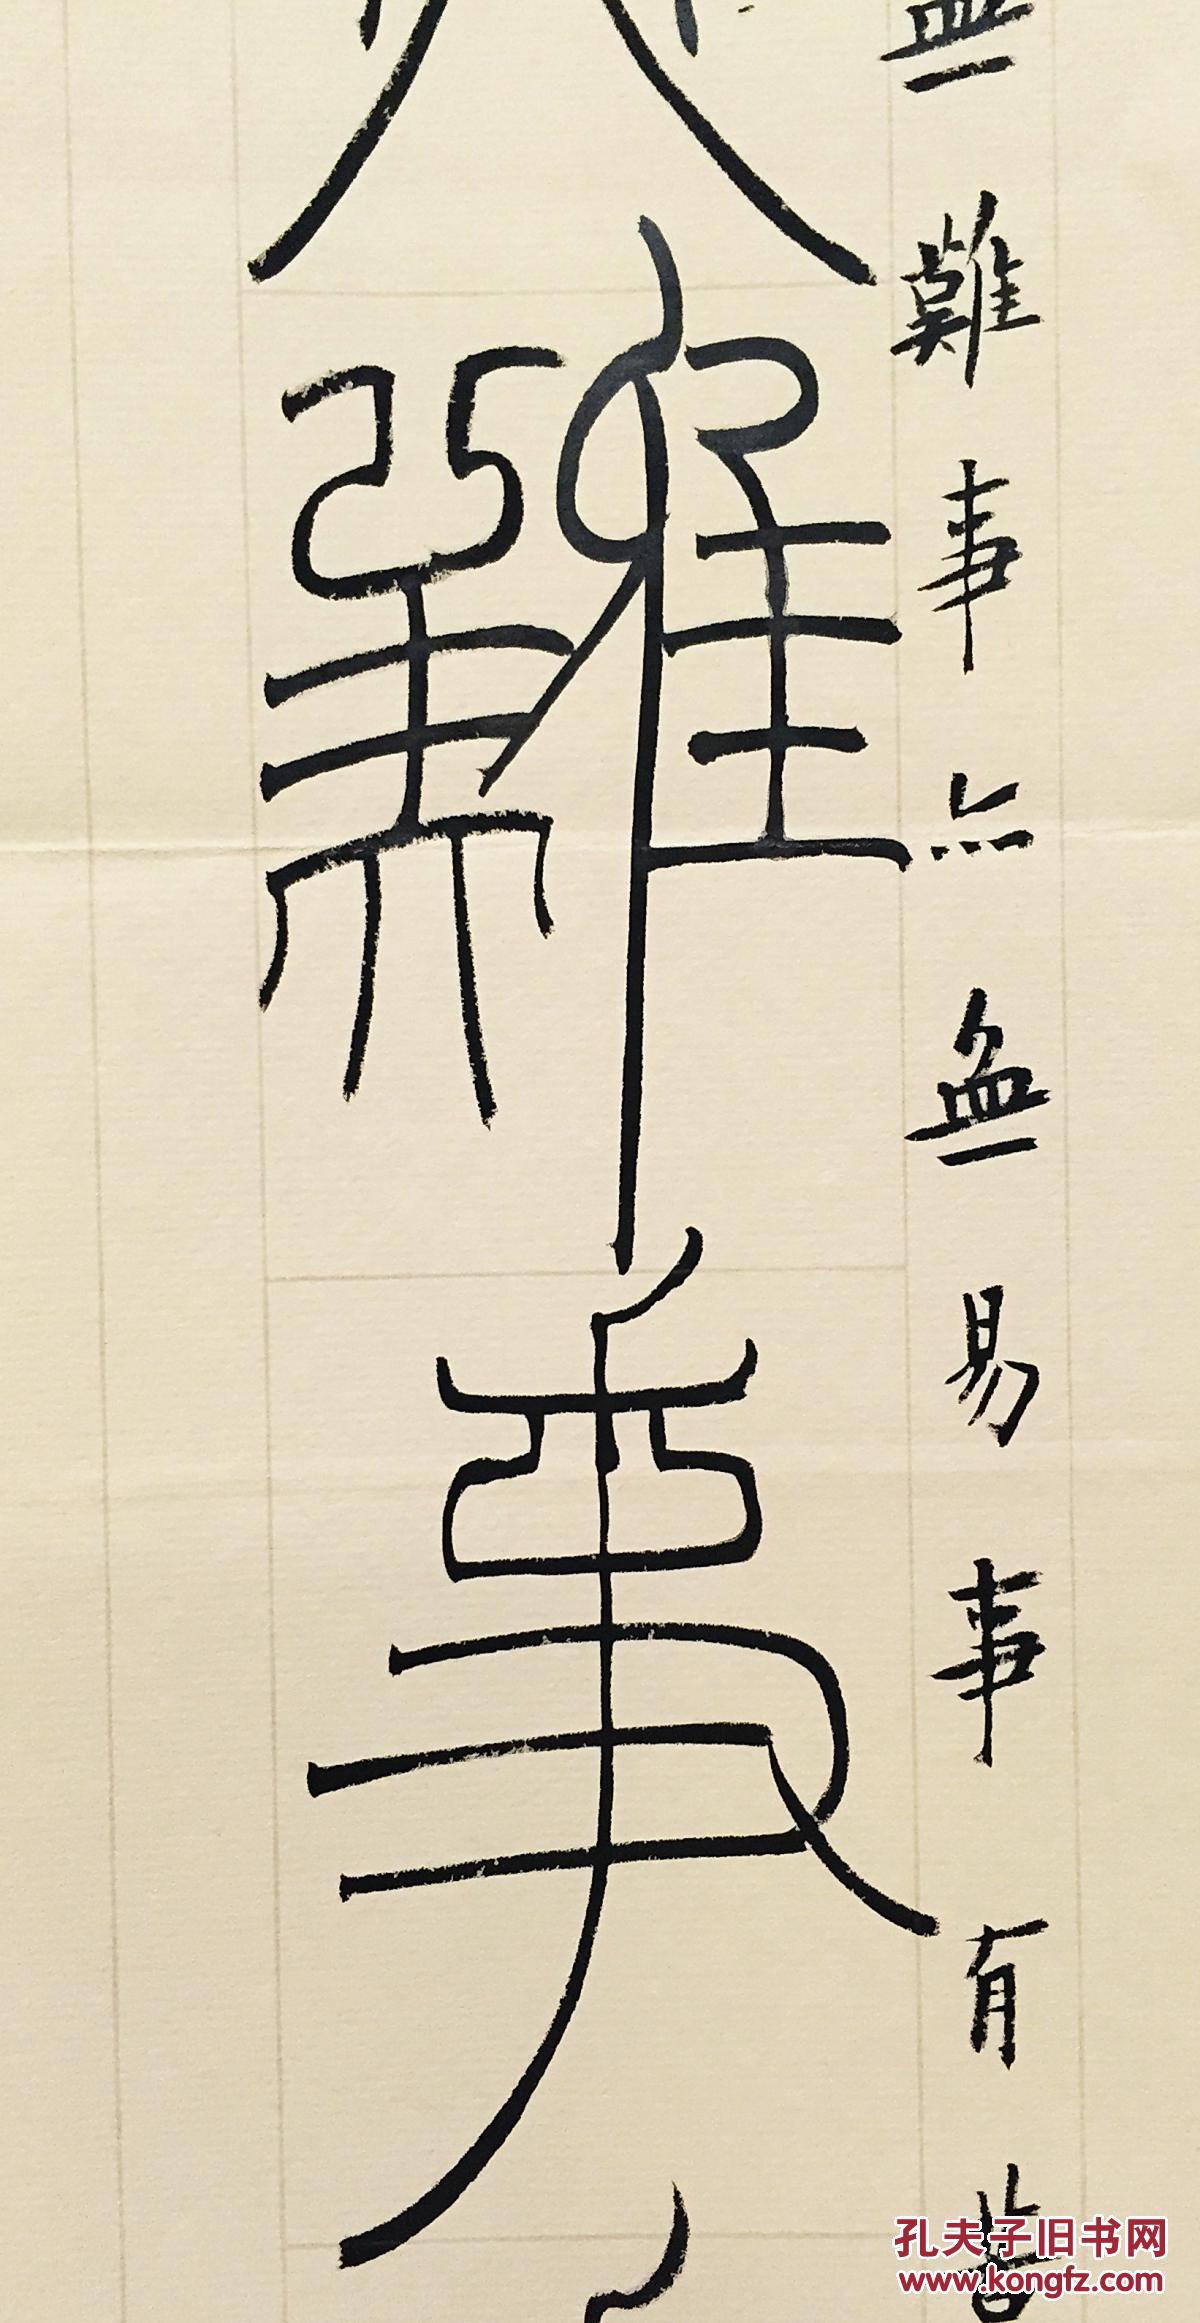 無難事亦無易事有善
難事
孔夫子旧书网
www.kongfz.com